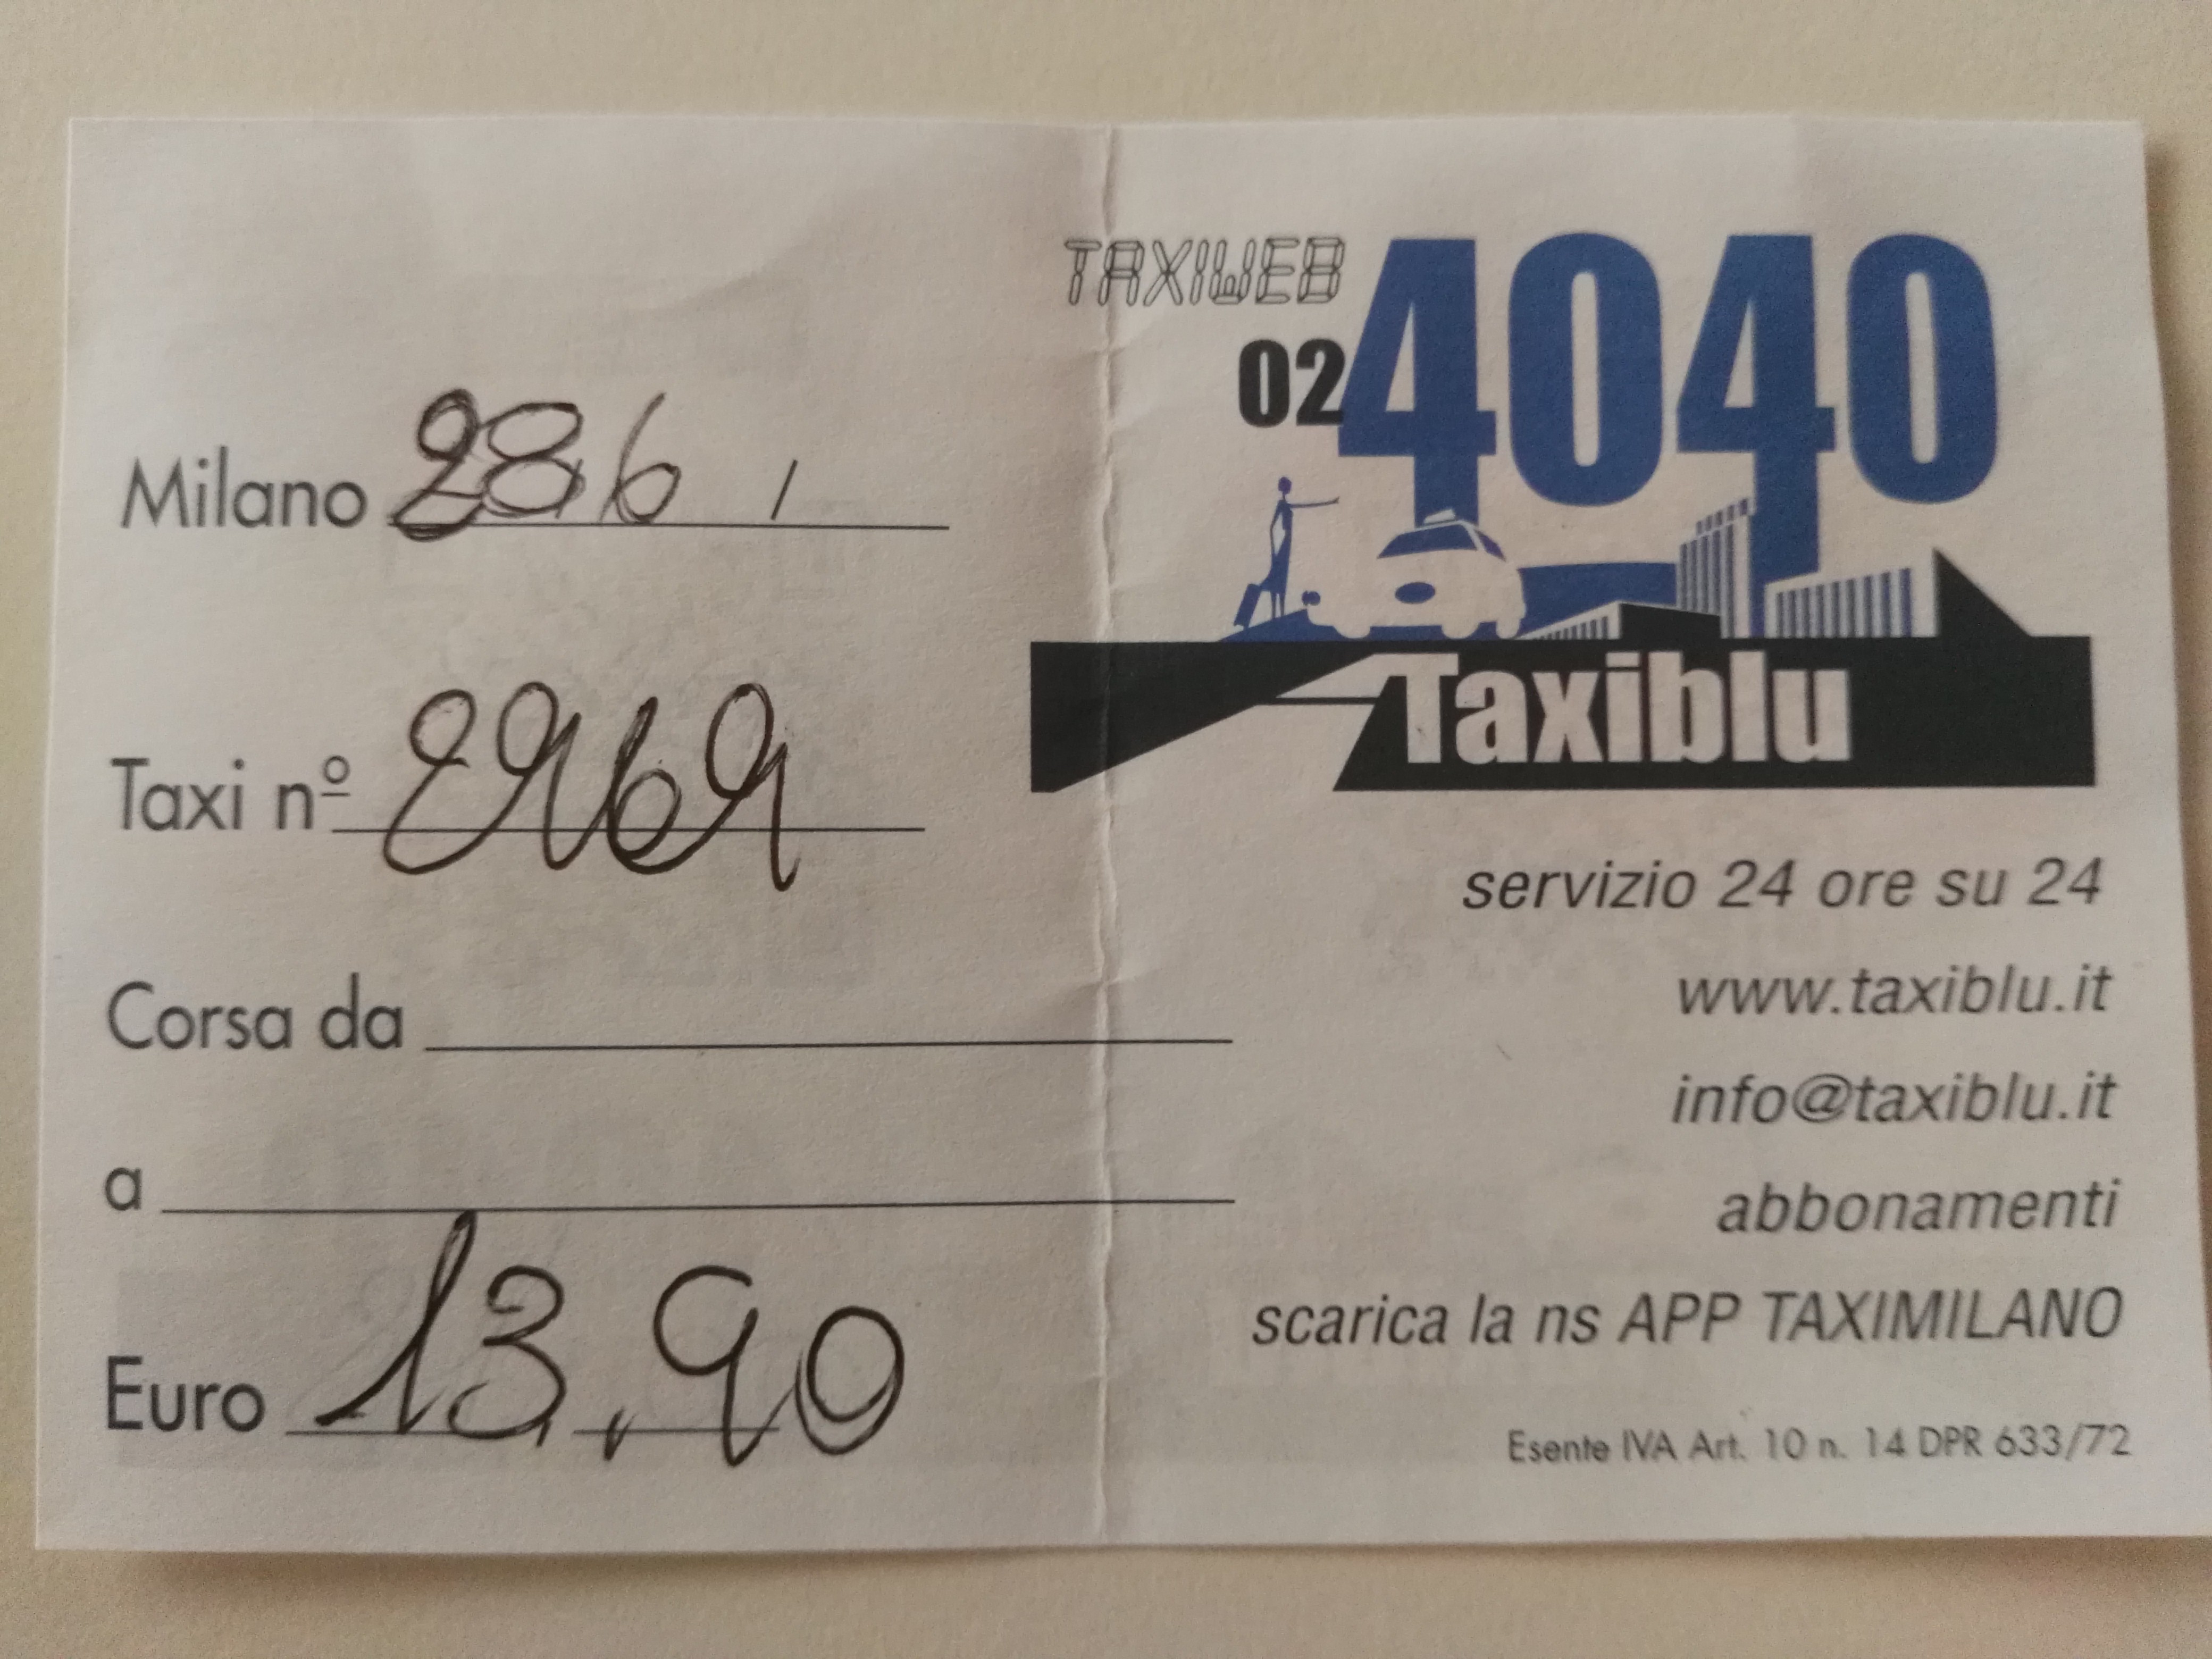 Milano 28 6 /
Taxi nº 2969
Corsa da
a
Euro 13,90
TAXIWEB
02 4040
Taxiblu
servizio 24 ore su 24
www.taxiblu.it
info@taxiblu.it
abbonamenti
scarica la ns APP TAXIMILANO
Esente IVA Art. 10 n. 14 DPR 633/72